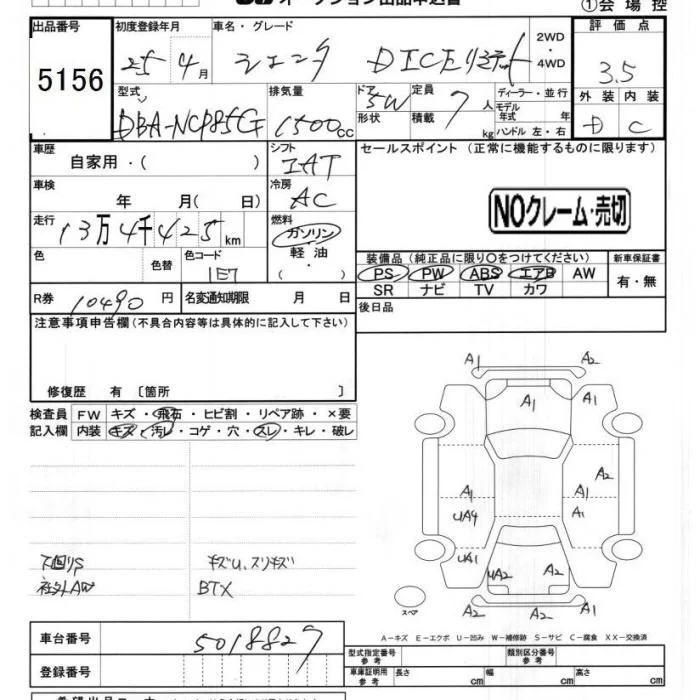 オークション出品申込書
①会場控
出品番号 初度登録年月 車名・グレード 2WD ・ 4WD 評価点
5156 25 4月 シエンタ DICEリミテッド 3.5
型式 排気量 ドア 形状 定員 積載 ディーラー・並行 外装 内装
DBA-NCP85G 1500cc 5W 7人 kg モデル年式 年 ハンドル 左・右 D C
車歴 シフト セールスポイント (正常に機能するものに限ります)
自家用・( ) IAT
車検 冷房
年 月( 日) AC NOクレーム・売切
走行 燃料
13万4千425km ガソリン
色 色替 色コード 軽油 装備品 (純正品に限り○をつけてください) 新車保証書
1E7 ・( ) PS PW ABS エアB AW 有・無
SR ナビ TV カワ
R券 10490円 名変通知期限 月 日 後日品
注意事項申告欄 (不具合内容等は具体的に記入して下さい)
修復歴 有 〔箇所 〕
検査員 FW キズ・飛石・ヒビ割・リペア跡・×要
記入欄 内装 キズ・汚レ・コゲ・穴・スレ・キレ・破レ
A1 A2
A1 A1
A2
A1 A1
UA4 A1
UA1 UA2 A2
A2 A2
スペア
下回りS キズU、スリキズ
社外AW BTX
A-キズ E-エクボ U-凹み W-補修跡 S-サビ C-腐食 XX-交換済
車台番号 5018829
型式指定番号 参考 類別区分番号 参考
登録番号 車庫証明用 参考 長さ cm 幅 cm 高さ cm